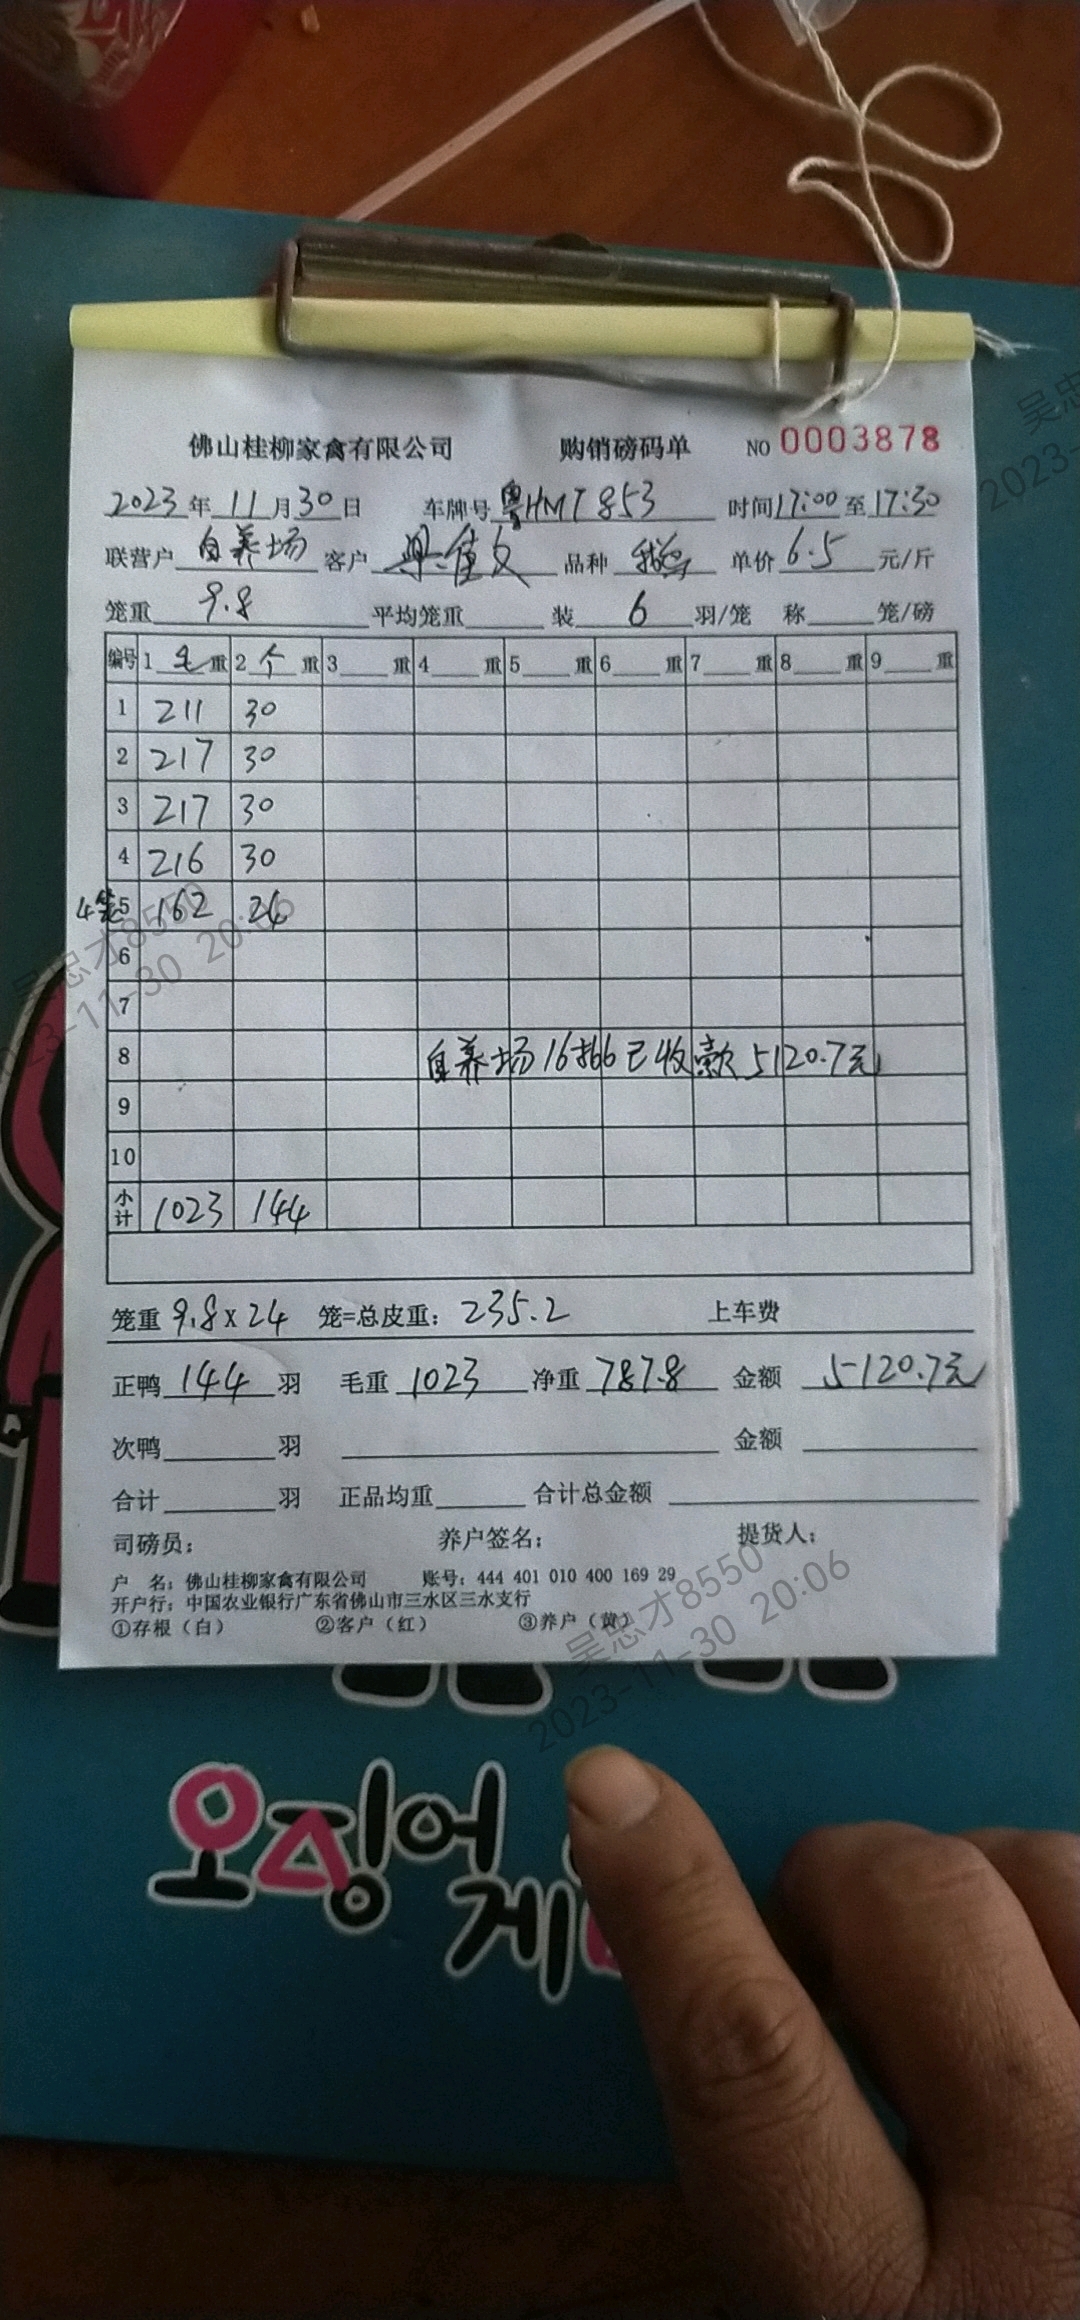 佛山桂柳家禽有限公司 购销磅码单 NO 0003878
2023年11月30日 车牌号粤HMT853 时间17:00至17:30
联营户自养场 客户 品种 单价6.5元/斤
笼重9.8 平均笼重 装6羽/笼 称 笼/磅
编号 1毛重 2个重 3重 4重 5重 6重 7重 8重 9重
1 211 30
2 217 30
3 217 30
4 216 30
4笼 5 162 24
6
7
8 自养场 已收款5120.7元
9
10
小计 1023 144
笼重9.8x24 笼=总皮重:235.2 上车费
正鸭144羽 毛重1023 净重787.8 金额5120.7元
次鸭 羽 金额
合计 羽 正品均重 合计总金额
司磅员: 养户签名: 提货人:
户 名:佛山桂柳家禽有限公司 账号:444 401 010 400 169 29
开户行:中国农业银行广东省佛山市三水区三水支行
①存根(白) ②客户(红) ③养户(黄)
吴忠才8550
2023-11-30 20:06
오징어
게